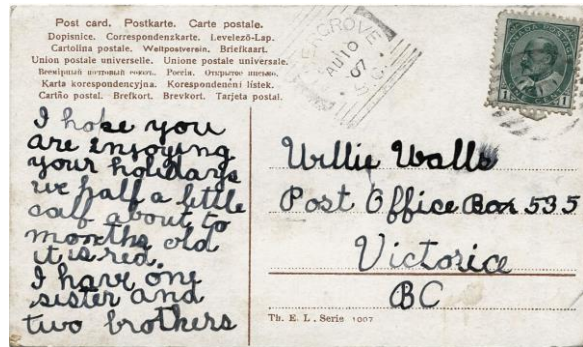 Post card. Postkarte. Carte postale.
Dopisnice. Correspondenzkarte. Levelező-Lap.
Cartolina postale. Weltpostverein. Briefkaart.
Union postale universelle. Unione postale universale.
Всемірный почтовый союзъ. Россія. Открытое письмо.
Karta korespondencyjna. Korespondenční lístek.
Cartão postal. Brefkort. Brevkort. Tarjeta postal.
GROVE
AU 10
07
B.C.
CANADA POSTAGE
1 1
I hope you
are enjoying
your holidays
we half a little
calf about to
months old
it is red.
I have one
sister and
two brothers
Willie Walls
Post Office Box 535
Victorice
BC
Th. E. L. Serie 1007